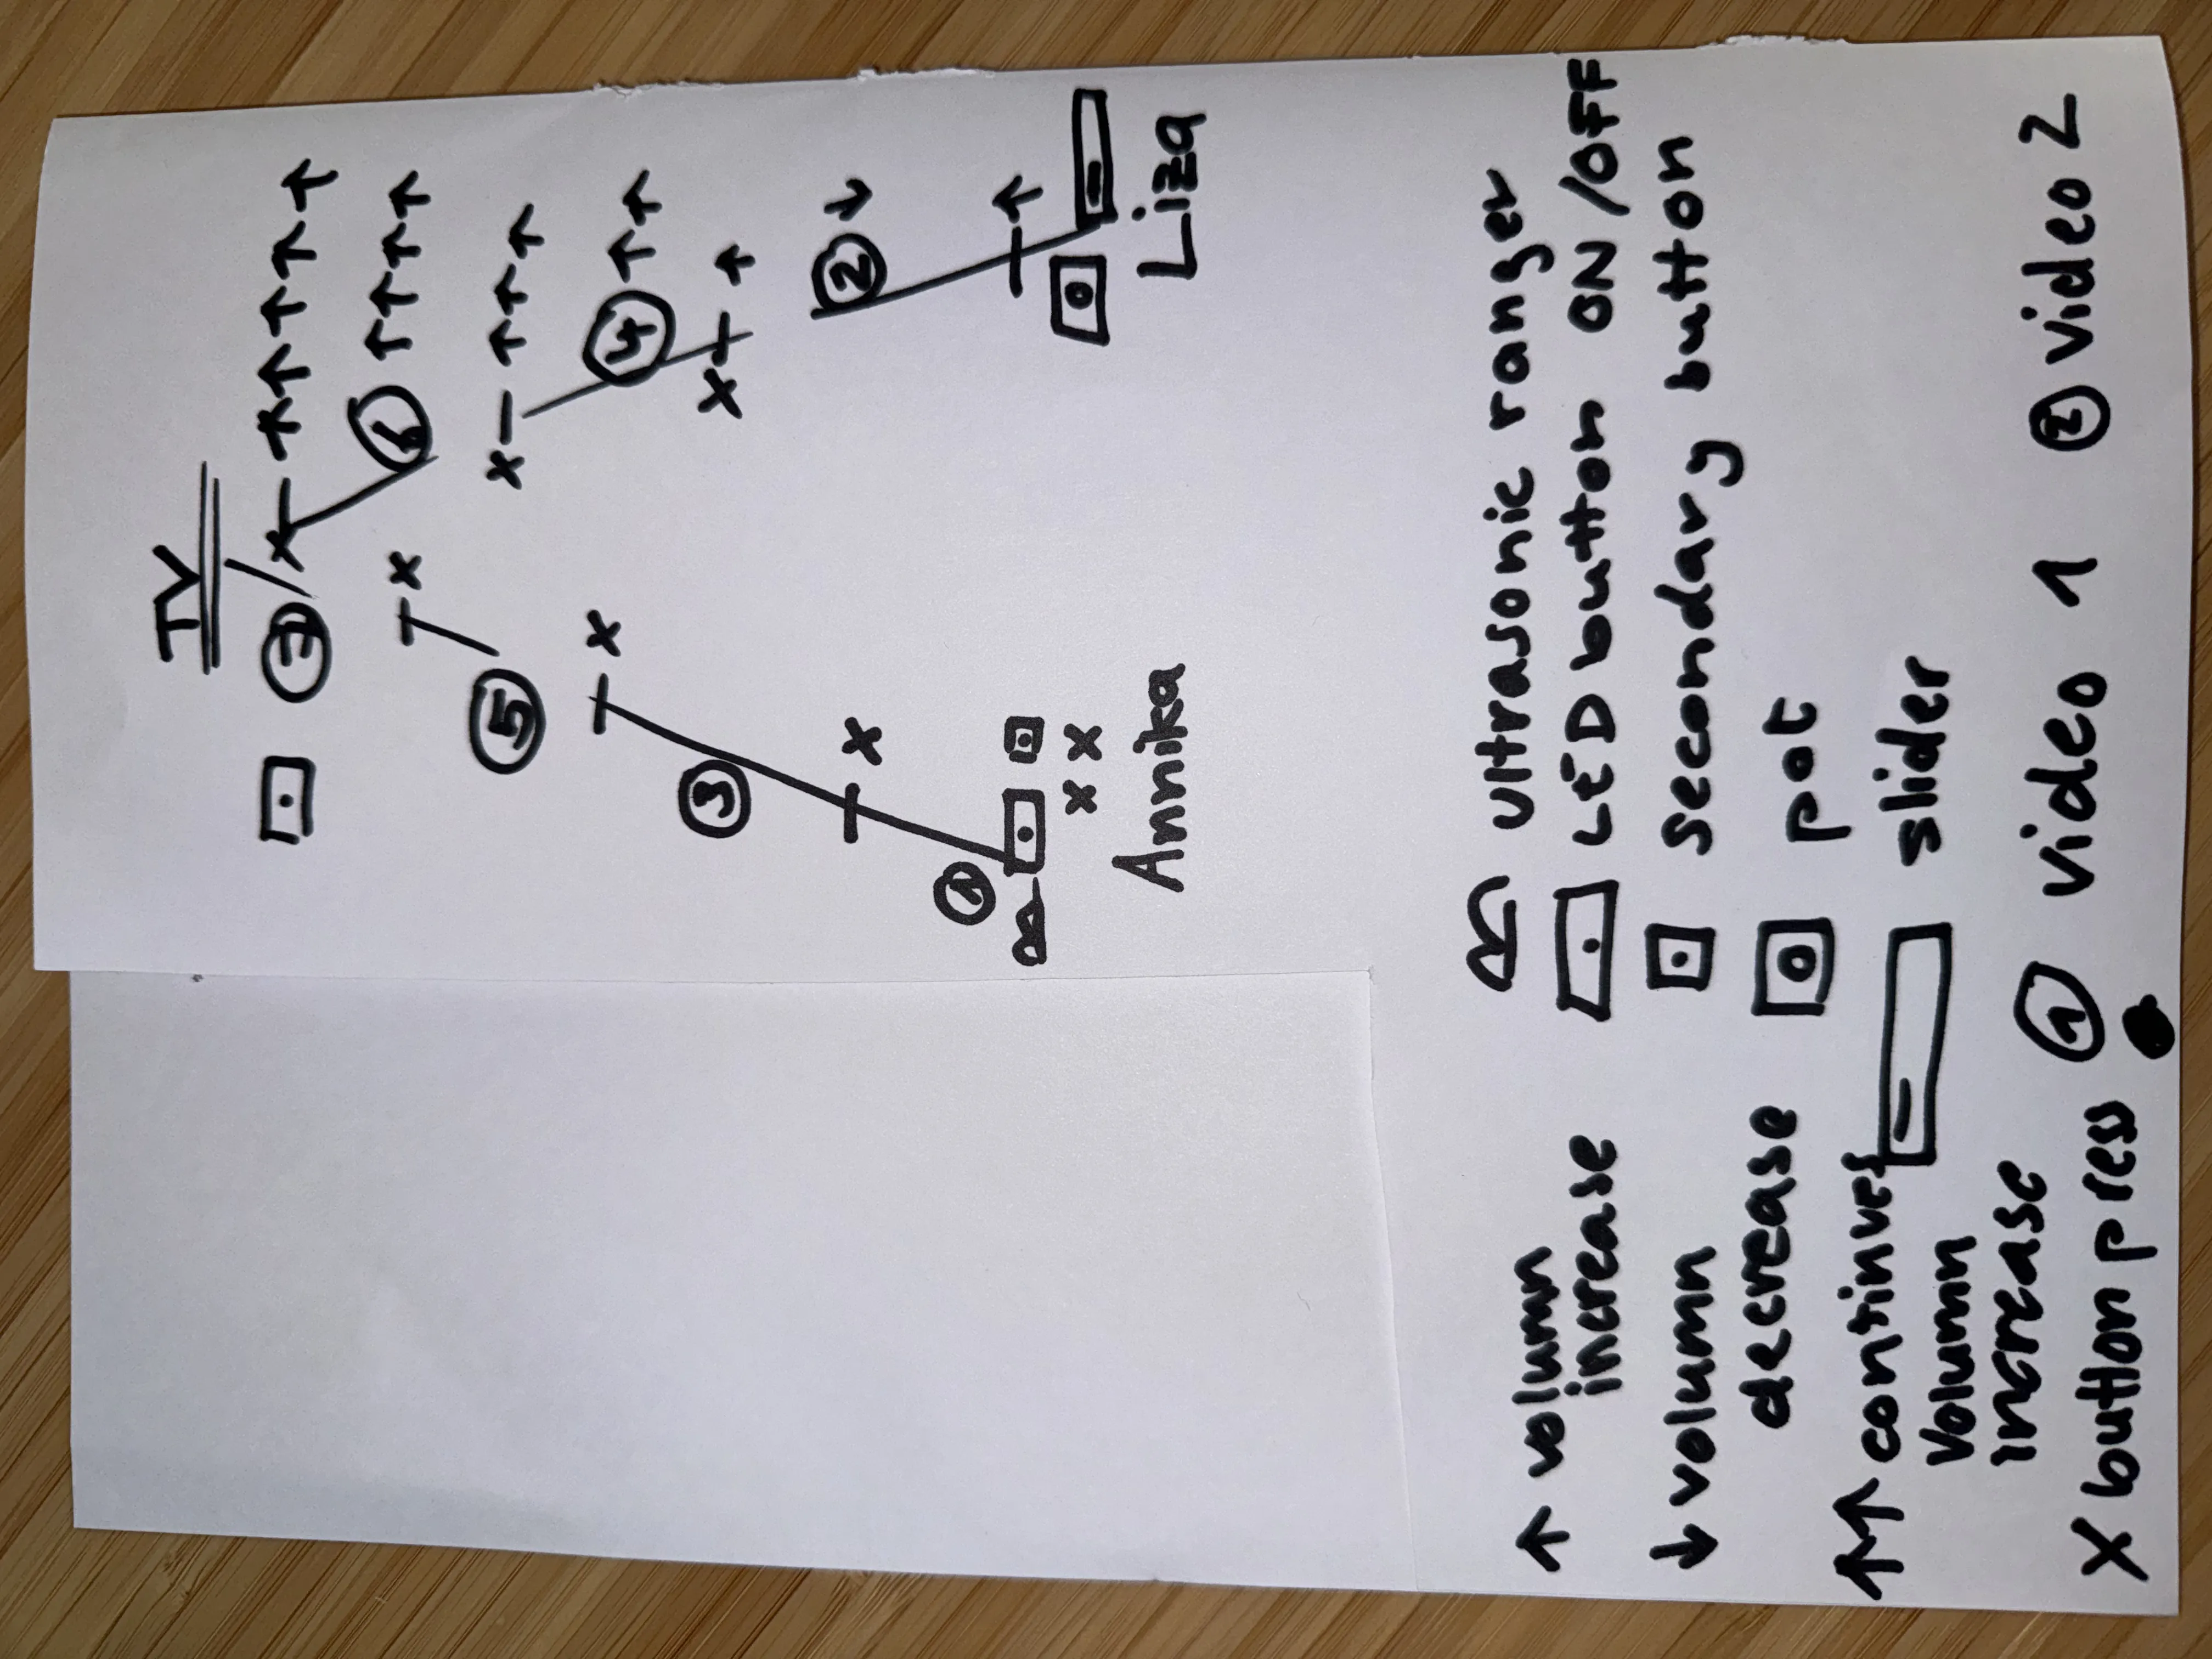 TV
7 x ↑↑↑↑↑↑
x 6 ↑↑↑↑
5 x ↑↑↑
x 4 ↑↑
3 x ↑
x 2 ↓
1 ↑
x x
Annika Liza
ultrasonic ranger
LED button ON/OFF
secondary button
pot
slider
① video 1 ② video 2
↑ volumn
increase
↓ volumn
decrease
↑↑ continues
volumn
increase
X button press